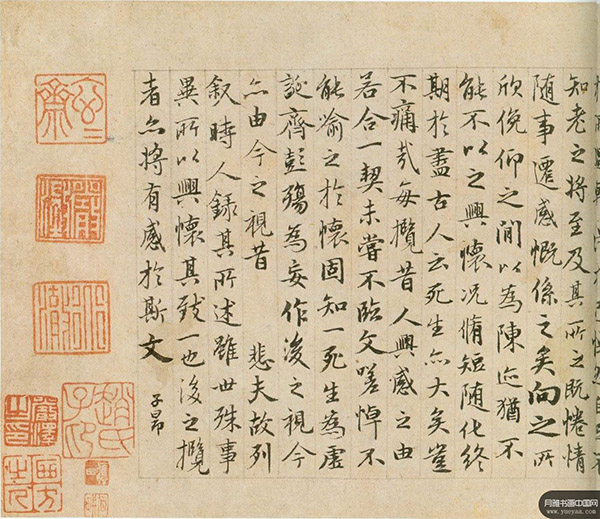 知老之将至及其所之既惓情
随事遷感慨係之矣向之所
欣俛仰之間以為陳迹猶不
能不以之興懷况脩短随化終
期於盡古人云死生亦大矣豈
不痛哉每攬昔人興感之由
若合一契未嘗不臨文嗟悼不
能喻之於懷固知一死生為虚
誕齊彭殤為妄作後之視今
亦由今之視昔 悲夫故列
叙時人録其所述雖世殊事
異所以興懷其致一也後之攬
者亦將有感於斯文
子昂
月雅书画中国网
www.yueyaa.com